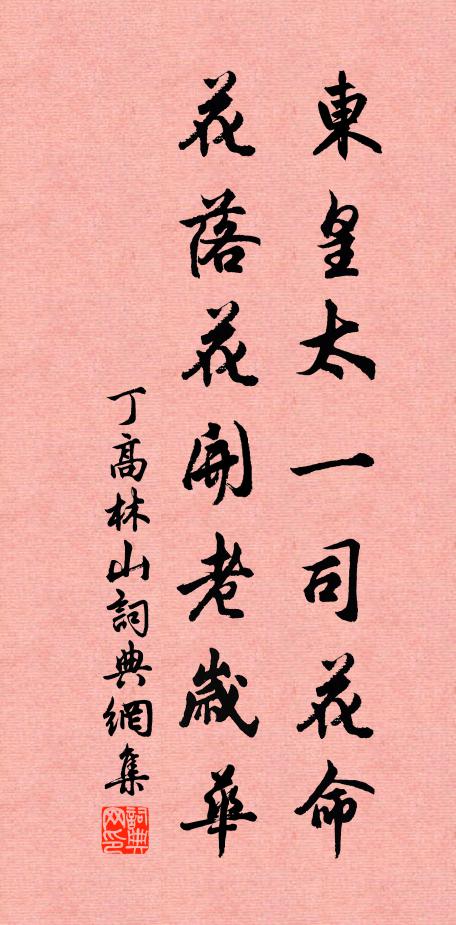 東皇太一司花命
花落花開老歲華
丁高林山詞典網集
詞典
网印